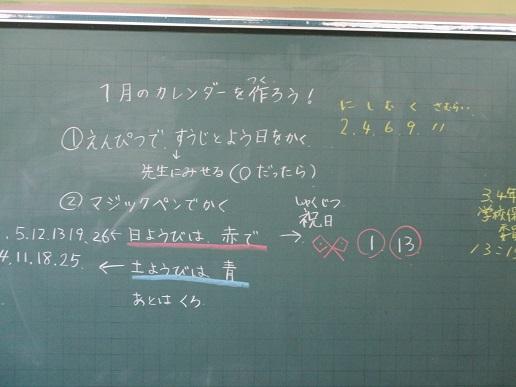 1月のカレンダーを作ろう!
つく
に し む く さむらい‥
2. 4. 6. 9. 11
①えんぴつで すうじとよう日をかく
↓
先生にみせる(○だったら)
②マジックペンでかく
しゃくじつ
祝日
5.12.13 19.26 ← 日ようびは 赤で → ① ⑬
4.11.18.25. ← 土ようびは 青
あとは くろ
3.4年
学校保
委員